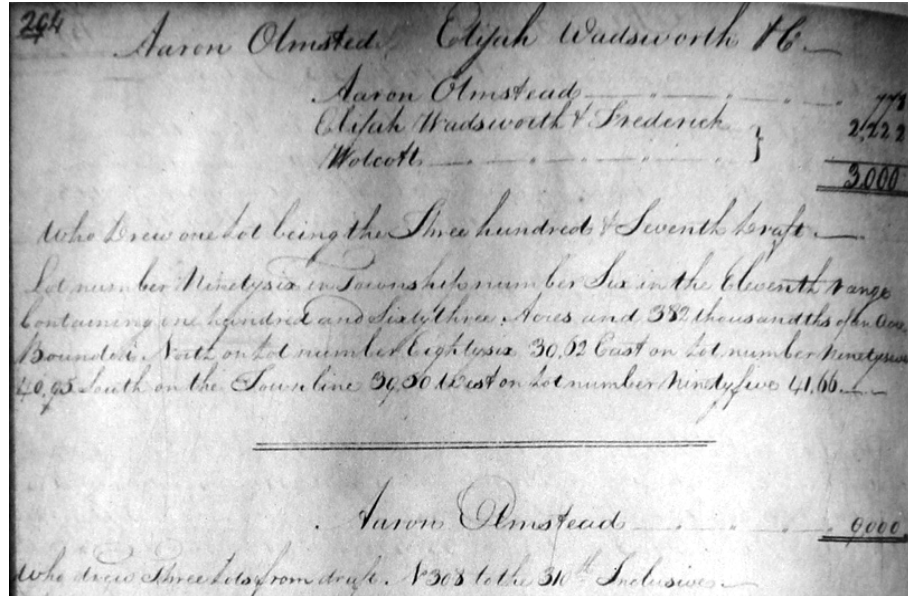 264
Aaron Olmsted, Elijah Wadsworth & C.
Aaron Olmstead 778
Elijah Wadsworth & Frederick } 2,222
Wolcott
3,000
Who Drew one Lot being the Three hundred & Seventh Draft.
Lot number Ninetysix in Township number Six in the Eleventh range
Containing one hundred and Sixty three Acres and 382 thousandths of an Acre
Bounded North on Lot number Eightysix 30,62 East on Lot number Ninetyseven
40,95 South on the Town line 39,50 West on Lot number Ninety five 41,66.
Aaron Olmstead 9,000
Who drew Three Lots from draft. N 308 to the 310th Inclusive